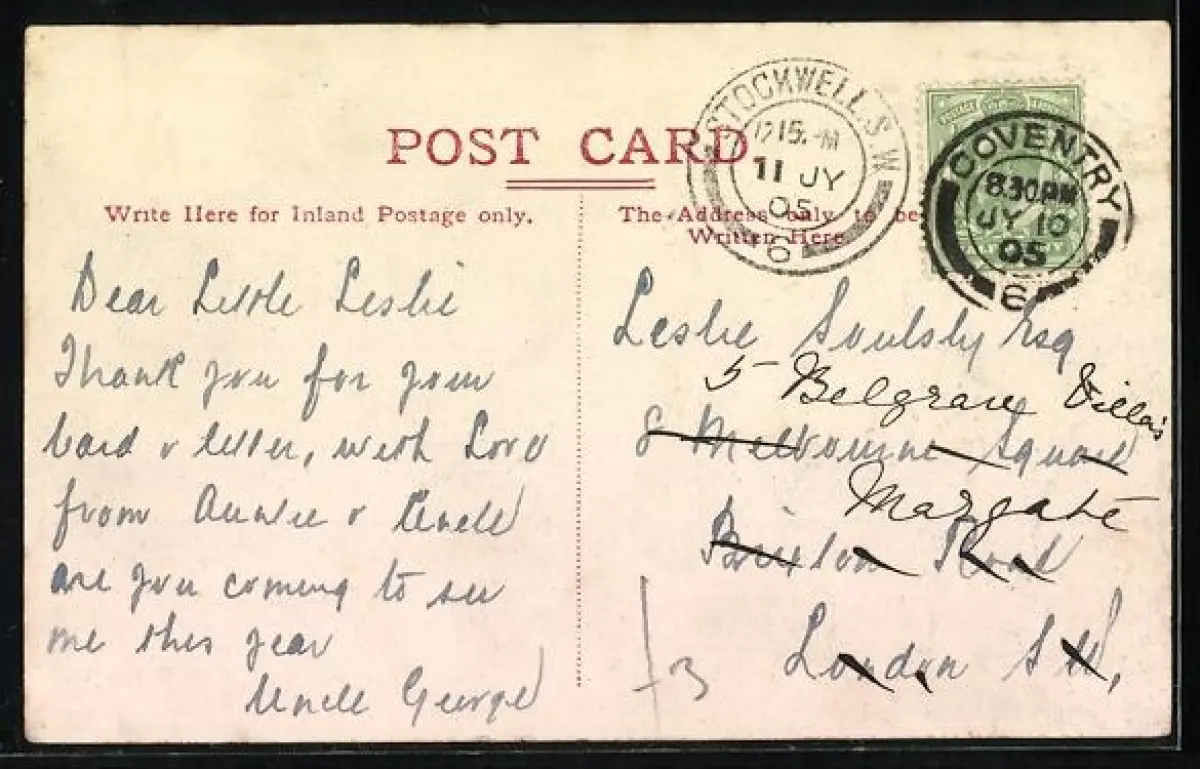 POST CARD
Write Here for Inland Postage only.
The Address only to be
Written Here
STOCKWELL.S.W
12 15. M
11 JY
05
6
COVENTRY
8.30 PM
JY 10
05
6
Dear Little Leslie
Thank you for your
card & letter, with Love
from Auntie & Uncle
are you coming to see
me this year
Uncle George
Leslie Soulsby Esq
5 Belgrave Villas
8 Melbourne Square
Margate
Brixton Road
London S W,
/3